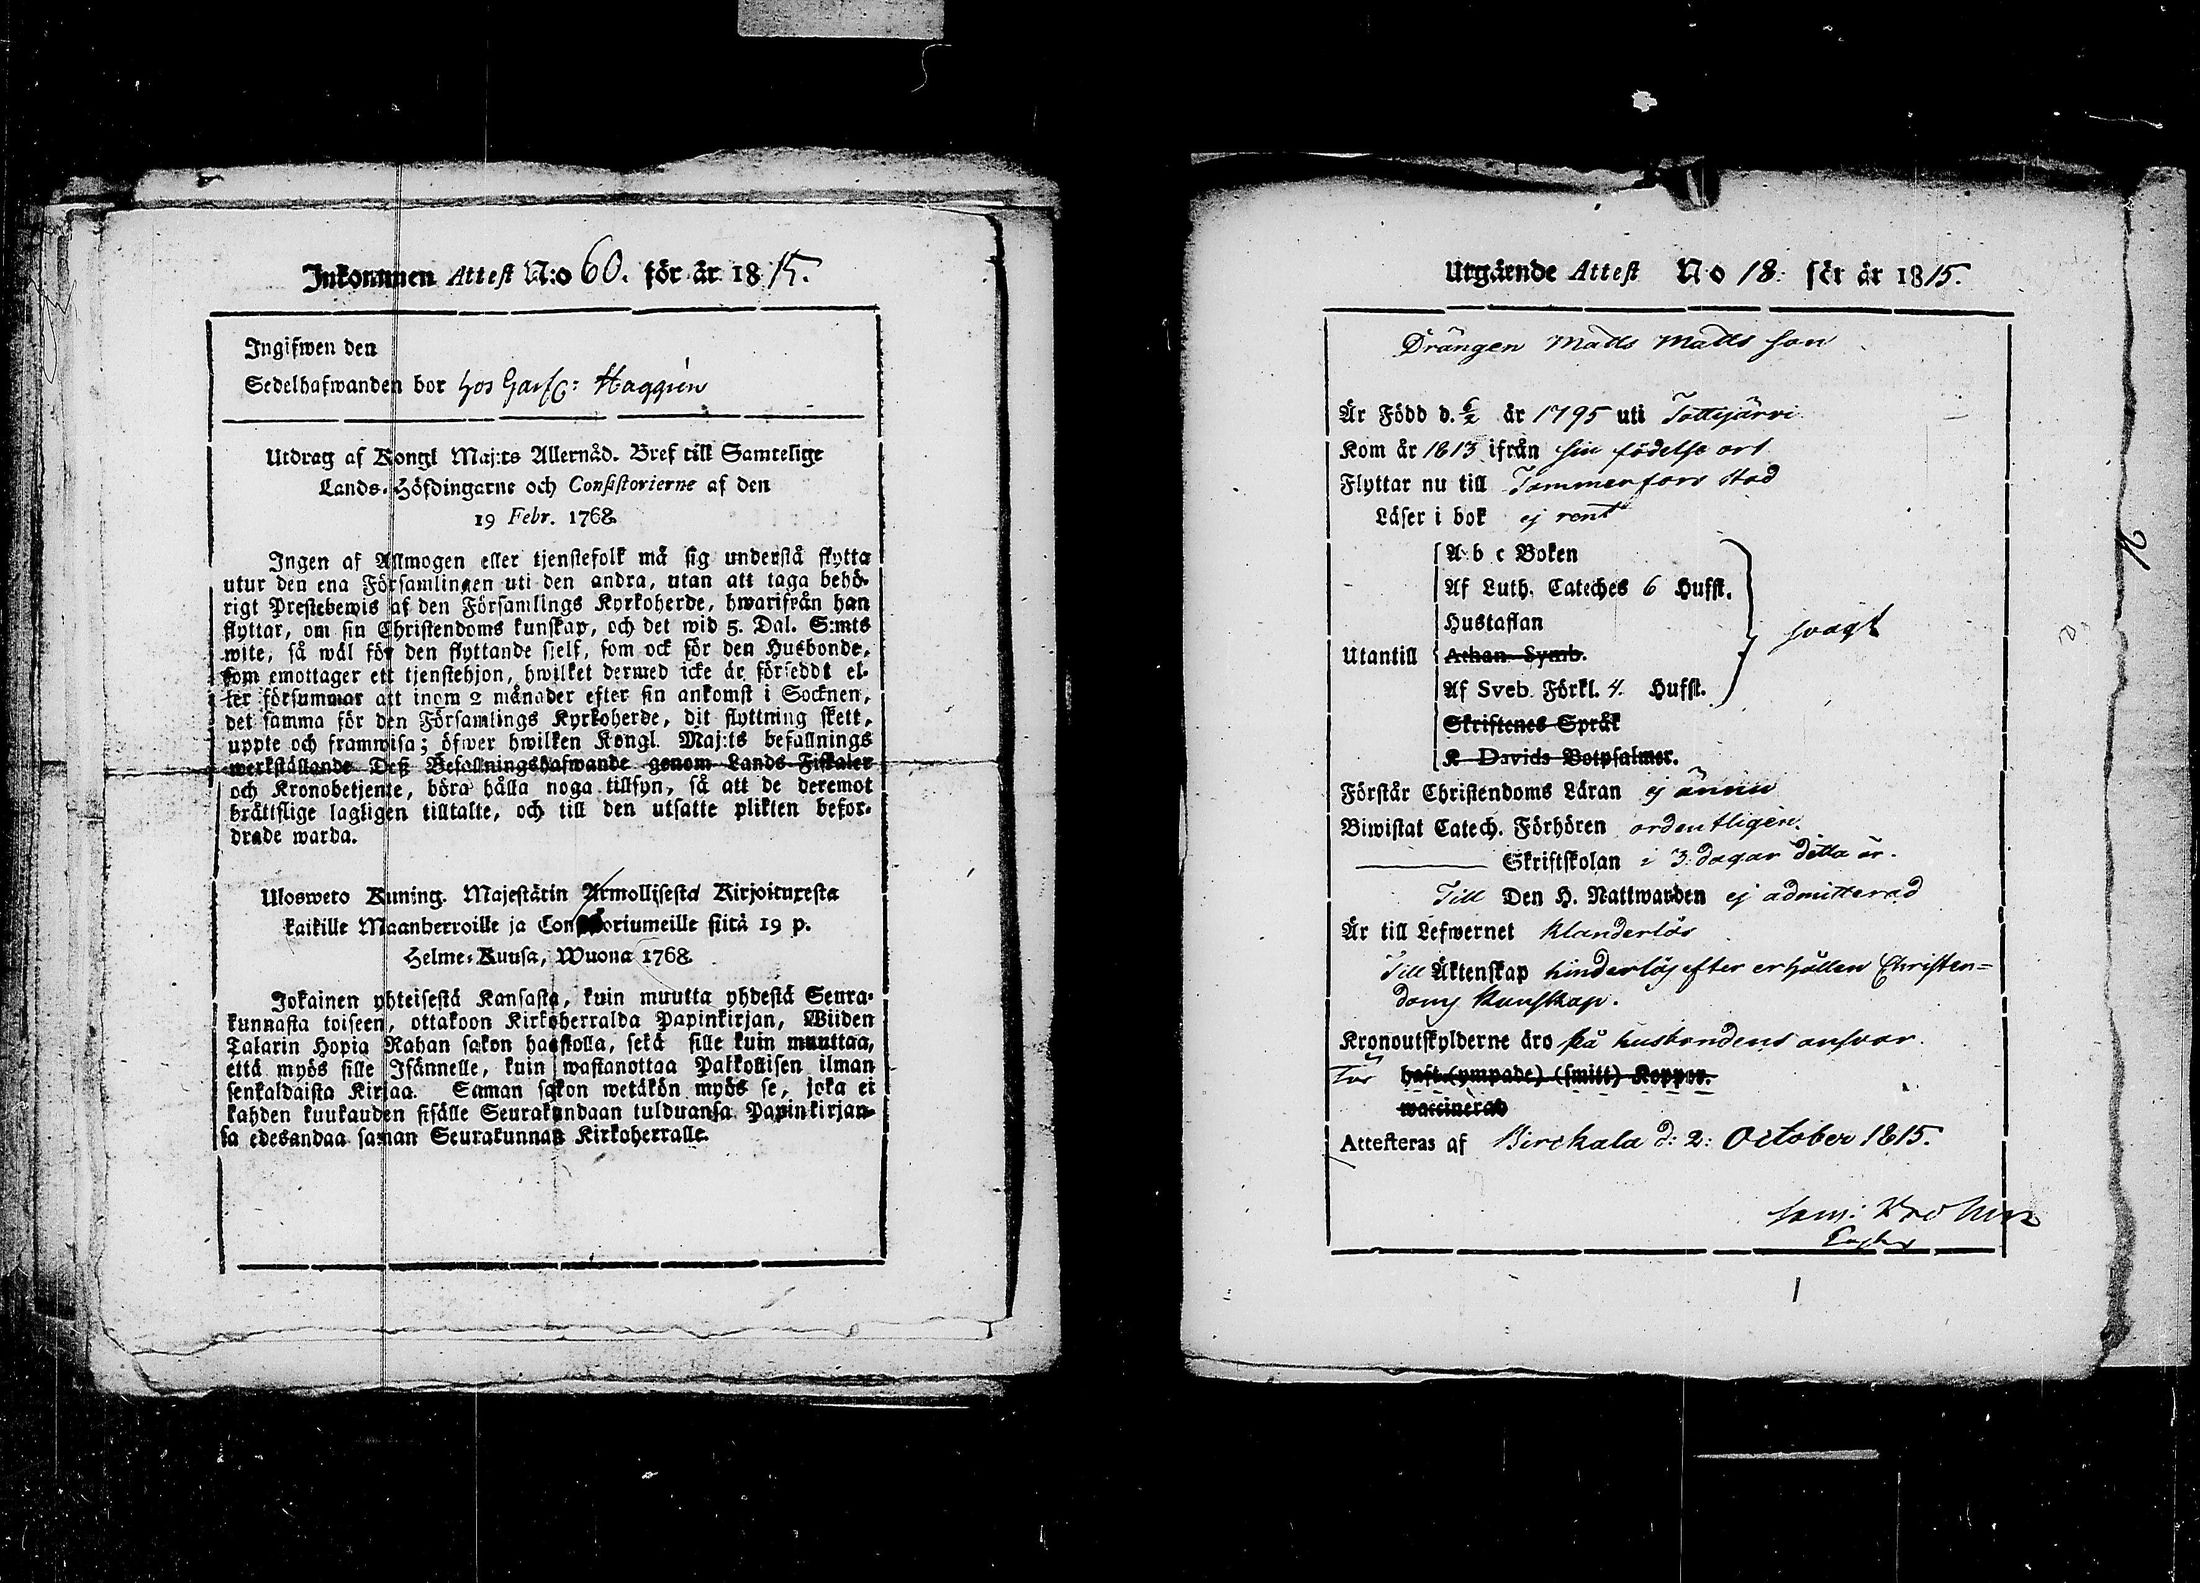 Inkommen Attest N:o 60. för år 1815.
Ingifwen den
Sedelhafwanden bor hos Garfv: Haggrén
Utdrag af Kongl Maj:ts Allernåd. Bref till Samtelige
Lands-Höfdingarne och Consistorierne af den
19 Febr. 1768.
Ingen af Allmogen eller tjenstefolk må sig understå flytta
utur den ena Församlingen uti den andra, utan att taga behö-
rigt Prestebewis af den Församlings Kyrkoherde, hwarifrån han
flyttar, om sin Christendoms kunskap, och det wid 5. Dal. S:mts
wite, så wäl för den flyttande sjelf, som ock för den Husbonde,
som emottager ett tjenstehjon, hwilket dermed icke är förseddt el-
ler försummar att inom 2 månader efter sin ankomst i Socknen,
det samma för den Församlings Kyrkoherde, dit flyttning skett,
uppte och framwisa; öfwer hwilken Kongl. Maj:ts befallnings
werkställande Desz Befallningshafwande genom Lands-Fiskaler
och Kronobetjente, böra hålla noga tillsyn, så att de deremot
bråttslige lagligen tilltalte, och till den utsatte plikten befor-
drade warda.
Ulosweto Kuning. Majestätin Armollisesta Kirjoituxesta
kaikille Maanherroille ja Consistoriumeille siitä 19 p.
Helme-Kuusa, Wuona 1768.
Jokainen yhteisestä Kansasta, kuin muutta yhdestä Seura-
kunnasta toiseen, ottakoon Kirkoherralda Papinkirjan, Wiiden
Talarin Hopia Rahan sakon haastolla, sekä sille kuin muuttaa,
että myös sille Isännelle, kuin wastanottaa Palkollisen ilman
senkaldaista Kirjaa. Saman sakon wetäkön myös se, joka ei
kahden kuukauden sisälle Seurakundaan tulduansa Papinkirjan-
sa edesandaa saman Seurakunnan Kirkoherralle.
Utgående Attest No 18: för år 1815.
Drängen Matts Matts son
Är Född d. 6/2 år 1795 uti Tottijärvi
Kom år 1813 ifrån sin födelse ort
Flyttar nu till Tammerfors stad
Läser i bok ej rent
A b c Boken
Af Luth. Cateches 6 Hufst.
Hustaflan
svagt
Utantill Athan. Symb.
Af Sveb. Förkl. 4. Hufst.
Skriftenes Språk
K Davids Botpsalmer.
Förstår Christendoms Läran ej ännu
Biwistat Catech. Förhören ordentligen.
Skriftskolan i 3: dagar detta år.
Till Den H. Nattwarden ej admitterad
Är till Lefwernet klanderlös
Till Äktenskap hinderlös efter erhållen Christen=
doms kunskap.
Kronoutskylderne äro på husbondens ansvar.
haft (ympade) (smitt) Koppor.
waccinerad
Attesteras af Birckala d: 2: October 1815.
Sam: Krohn
1